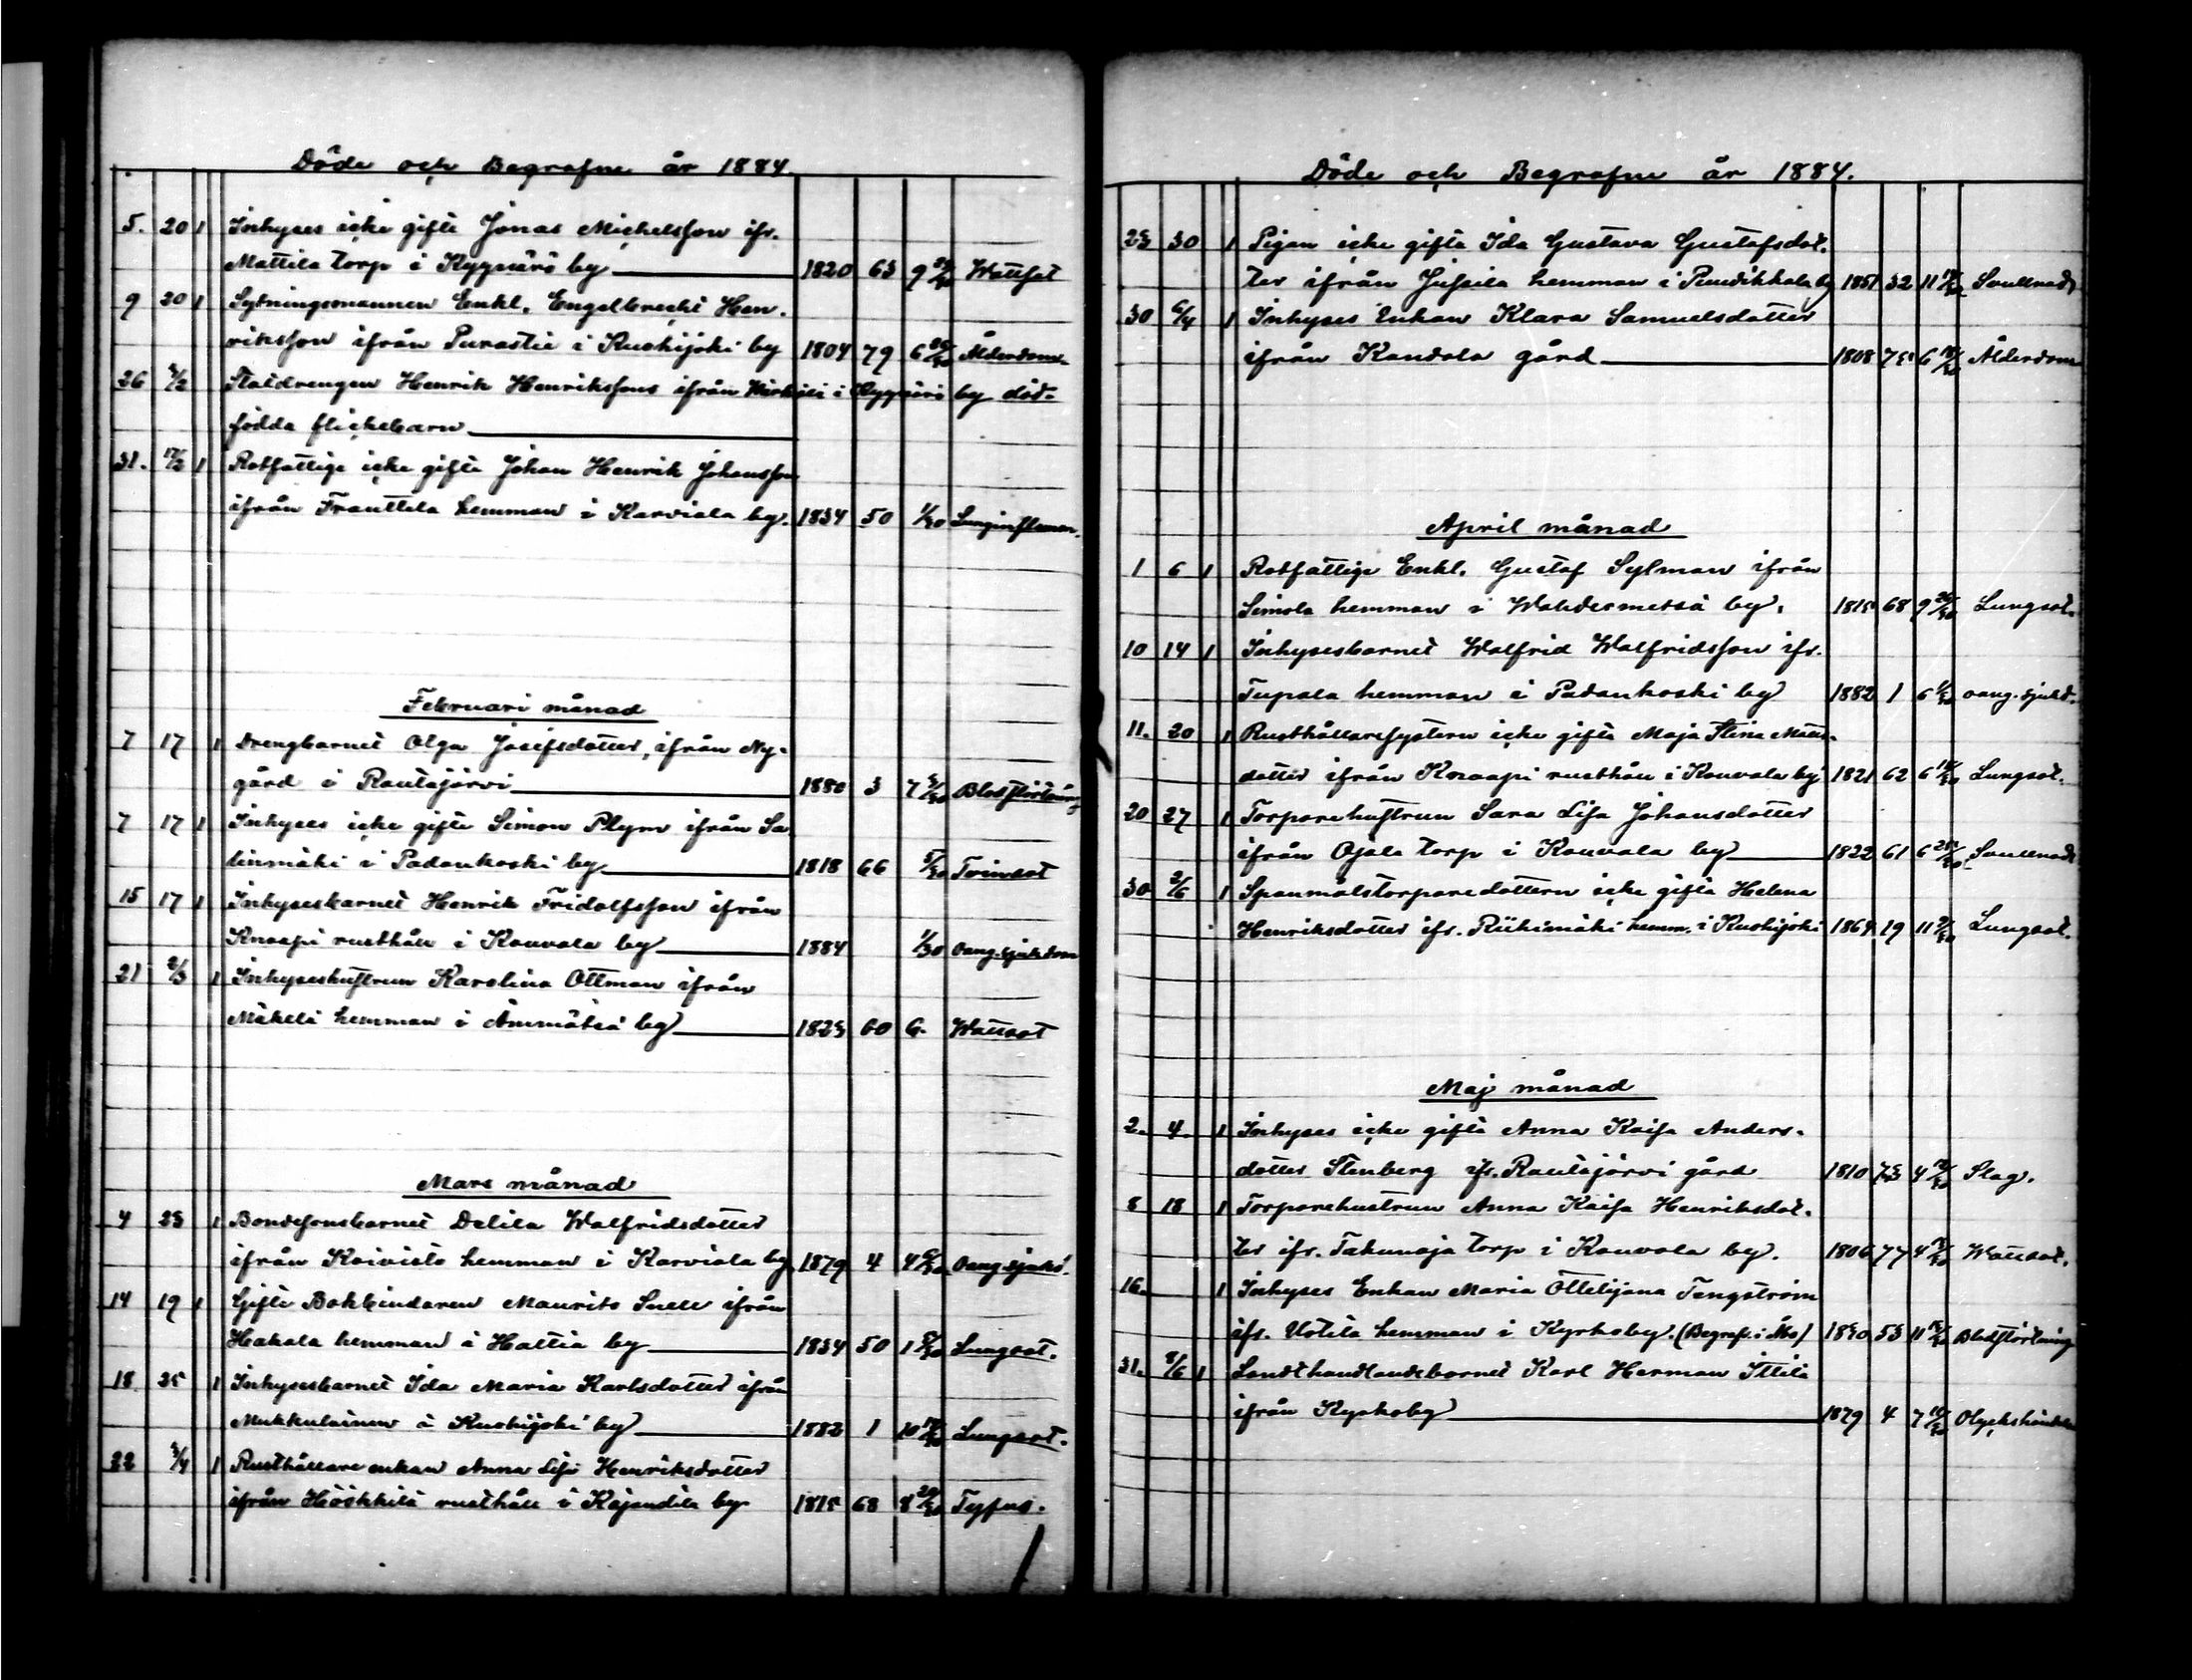 Döde och Begrafne år 1884.
5. 20 1 Inhyses icke gifte Jonas Michelsson ifr.
Mattila torp i Kypsärö by 1820 63 9 Wattsot
9 20 1 Sytningsmannen Enkl. Engelbrecht Hen-
riksson ifrån Purastie i Kuskijoki by 1804 79 6 25/30 Ålderdom
26 3/2 Statdrengen Henrik Henrikssons ifrån i by död-
födda flickebarn
31. 17/2 1 Rotfattige icke gifte Johan Henrik Johansson
ifrån Franttila hemman i Karviala by. 1834 50 1/30 Lunginflamm.
Februari månad
7 17 1 Drengbarnet Olga Josefsdotter, ifrån Ny-
gård i Rautajärvi 1880 3 7 5/30 Blodstörtning
7 17 1 Inhyses icke gifte Simon Plym ifrån Sa
linmäki i Padankoski by 1818 66 5/30 Tvinsot
15 17 1 Inhysesbarnet Henrik Fridolfsson ifrån
Knaapi rusthåll i Kouvola by 1884 1/30 Oang. sjukdom
21 2/3 1 Inhyseshustrun Karolina Ottman ifrån
Mäkelä hemman i Ämmätsä by 1823 60 6. Wattsot
Mars månad
4 23 1 Bondesonsbarnet Delila Walfridsdotter
ifrån Koivisto hemman i Karviala by 1879 4 4 Oang. sjukd.
14 19 1 Gifte Bokbindaren Maurits Snell ifrån
Hakala hemman i Hattia by 1834 50 1 Lungsot.
18 25 1 Inhysesbarnet Ida Maria Karlsdotter ifrån
Mukkulainen i Kuskijoki by 1882 1 10 Lungsot.
22 3/4 1 Rusthållare enkan Anna Lisa Henriksdotter
ifrån Höökkilä rusthåll i Kajandila by 1815 68 8 29/30 Tyfus.
Döde och Begrafne år 1884.
23 30 1 Pigan icke gifte Ida Gustava Gustafsdot-
ter ifrån Jussila hemman i Pundikkala by 1851 32 11 Svullnad
30 6/4 1 Inhyses Enkan Klara Samuelsdotter
ifrån Kandola gård 1808 75 6 Ålderdom
April månad
1 6 1 Rotfattige Enkl. Gustaf Sylman ifrån
Simola hemman i Wahdermetsä by. 1815 68 9 Lungsot.
10 14 1 Inhysesbarnet Walfrid Walfridsson ifr.
Tupala hemman i Padankoski by 1882 1 6 oang. sjukd.
11. 20 1 Rusthållaresystern icke gifte Maja Stina Matts-
dotter ifrån Knaapi rusthåll i Kouvola by 1821 62 6 Lungsot.
20 27 1 Torparehustrun Sara Lisa Johansdotter
ifrån Ojala torp i Kouvola by 1822 61 6 Svullnad
30 2/6 1 Spanmålstorparedottern icke gifte Helena
Henriksdotter ifr. Riihimäki hemm. i Kuskijoki 1864 19 11 Lungsot.
Maj månad
2. 4. 1 Inhyses icke gifte Anna Kaisa Anders-
dotter Stenberg ifr. Rautajärvi gård 1810 73 4 Slag.
8 18 1 Torparehustrun Anna Kaisa Henriksdot-
ter ifr. Takunaja torp i Kouvola by. 1806 77 4 Wattsot.
16. 1 Inhyses Enkan Maria Ottelijana Tengström
ifr. Uotila hemman i Kyrkoby. (Begrafv. i Åbo) 1830 53 11 Blodstörtning
31. 8/6 1 Landthandlandebarnet Karl Herman Ittilä
ifrån Kyrkoby 1879 4 7 Olyckshändelse